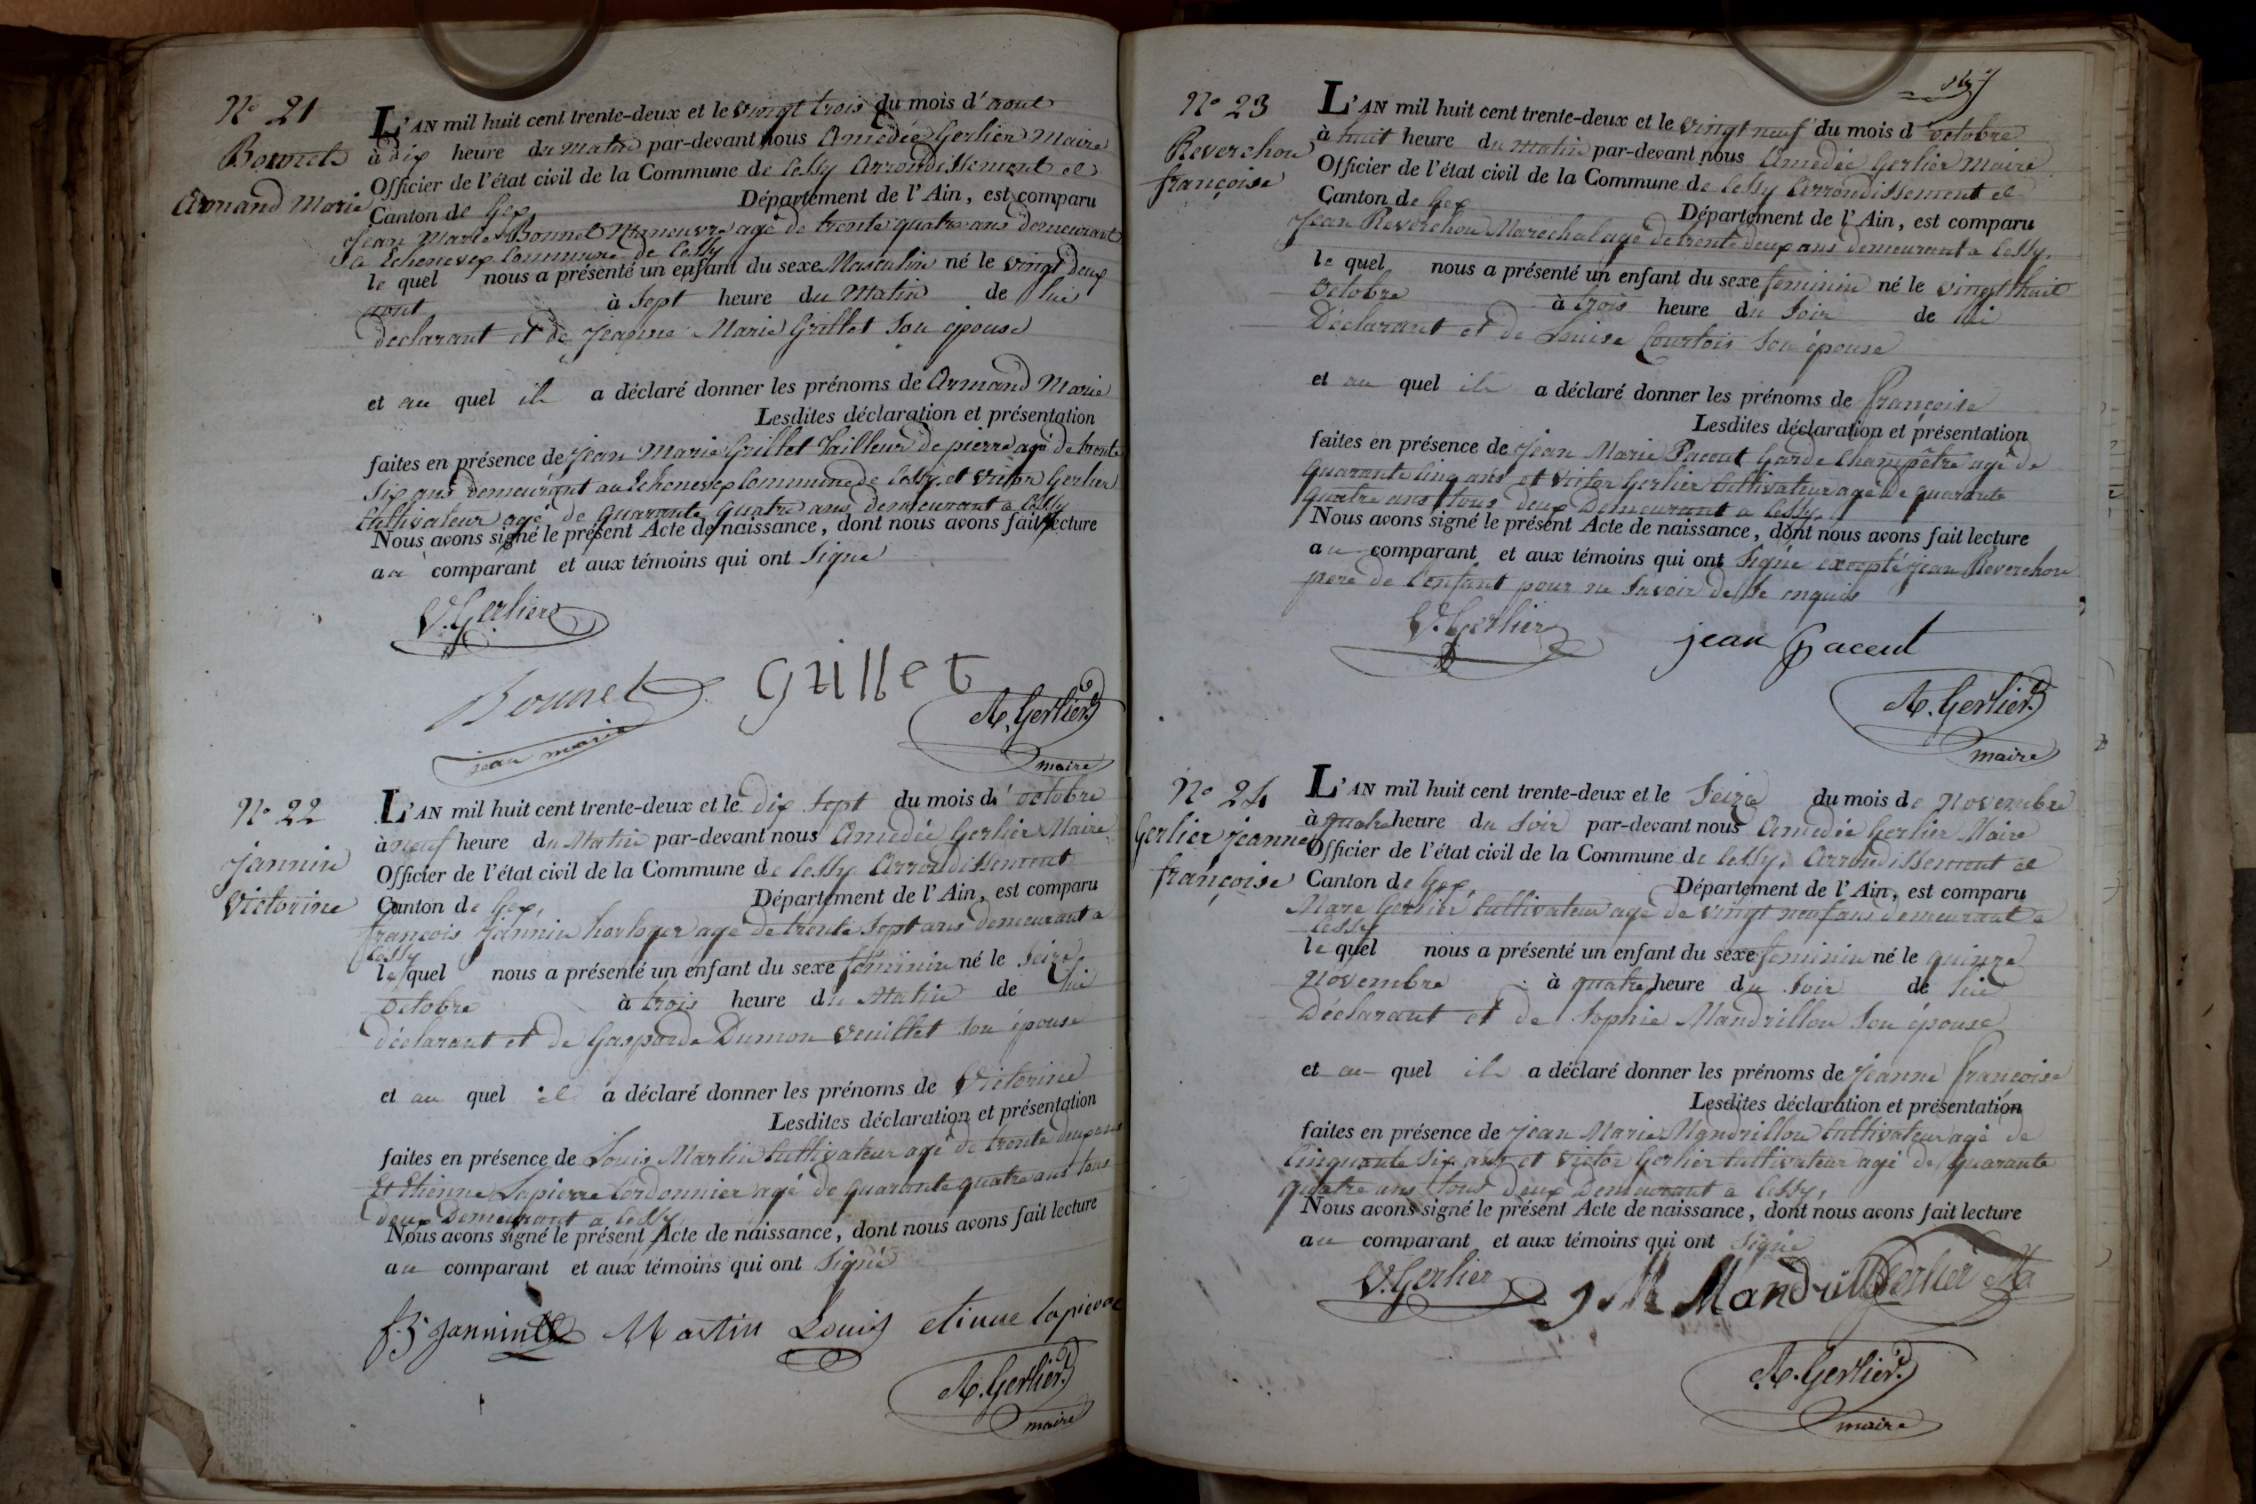 N° 21
Bonnet
Armand Marie
L'AN mil huit cent trente-deux et le vingt trois du mois d'aout
à dix heure du matin par-devant nous Amédée Gerlier Maire
Officier de l'état civil de la Commune de Cessy Arrondissement et
Canton de Gex Département de l'Ain, est comparu
Jean Marie Bonnet Maneuvre agé de trente quatre ans demeurant
a Echenevex Commune de Cessy
le quel nous a présenté un enfant du sexe Masculin né le vingt deux
aout à Sept heure du Matin de lui
declarant et de Jeanne Marie Grillet Son épouse
et au quel il a déclaré donner les prénoms de Armand Marie
Lesdites déclaration et présentation
faites en présence de Jean Marie Grillet Tailleur de pierre agé de trente
Six ans demeurant au Echenevex Commune de Cessy, et Victor Gerlier
Cultivateur agé de quarante quatre ans demeurant a Cessy
Nous avons signé le présent Acte de naissance, dont nous avons fait lecture
au comparant et aux témoins qui ont Signé
V. Gerlier
Bonnet
jean marie
Grillet
A. Gerlier
maire
N° 22
Jannin
Victorine
L'AN mil huit cent trente-deux et le dix Sept du mois d'octobre
à neuf heure du Matin par-devant nous Amédée Gerlier Maire
Officier de l'état civil de la Commune de Cessy Arrondissement
Canton de Gex, Département de l'Ain, est comparu
françois Jannin horloger agé de trente Sept ans demeurant a
Cessy
le quel nous a présenté un enfant du sexe féminin né le Seize
Octobre à trois heure du Matin de lui
déclarant et de Gasparde Dumon Veuillet Son épouse
et au quel il a déclaré donner les prénoms de Victorine
Lesdites déclaration et présentation
faites en présence de Louis Martin Cultivateur agé de trente deux ans
Et Etienne Lapierre Cordonnier agé de quarante quatre ans tous
deux Demeurant a Cessy
Nous avons signé le présent Acte de naissance, dont nous avons fait lecture
au comparant et aux témoins qui ont Signé
fs Jannin Martin Louis etienne lapierre
A. Gerlier
maire
N° 23
Reverchon
françoise
L'AN mil huit cent trente-deux et le vingt neuf du mois d'octobre
à huit heure du matin par-devant nous Amédée Gerlier Maire
Officier de l'état civil de la Commune de Cessy Arrondissement et
Canton de Gex Département de l'Ain, est comparu
Jean Reverchon Marechal agé de trente deux ans demeurant a Cessy.
le quel nous a présenté un enfant du sexe feminin né le vingt huit
Octobre à trois heure du Soir de lui
Déclarant et de Louise Courtois Son épouse
et au quel il a déclaré donner les prénoms de françoise
Lesdites déclaration et présentation
faites en présence de Jean Marie Pacout Garde Champêtre agé de
Quarante Cinq ans et Victor Gerlier Cultivateur agé de quarante
Quatre ans tous deux Demeurant a Cessy,
Nous avons signé le présent Acte de naissance, dont nous avons fait lecture
au comparant et aux témoins qui ont Signé excepté Jean Reverchon
pere de l'enfant pour ne Savoir de ce enquis
V. Gerlier
jean pacout
A. Gerlier
maire
N° 24
Gerlier jeanne
françoise
L'AN mil huit cent trente-deux et le Seize du mois de Novembre
à quatre heure du Soir par-devant nous Amedée Gerlier Maire
Officier de l'état civil de la Commune de Cessy, Arrondissement et
Canton de Gex, Département de l'Ain, est comparu
Marc Gerlier Cultivateur agé de vingt neuf ans demeurant a
Cessy
le quel nous a présenté un enfant du sexe feminin né le quinze
Novembre à quatre heure du Soir de lui
Déclarant et de Sophie Mandrillon Son épouse
et au quel il a déclaré donner les prénoms de Jeanne françoise
Lesdites déclaration et présentation
faites en présence de Jean Marie Mandrillon Cultivateur agé de
Cinquante Six ans et Victor Gerlier Cultivateur agé de quarante
quatre ans tous deux Demeurant a Cessy,
Nous avons signé le présent Acte de naissance, dont nous avons fait lecture
au comparant et aux témoins qui ont Signé
V. Gerlier J M Mandrill Gerlier
A. Gerlier
maire